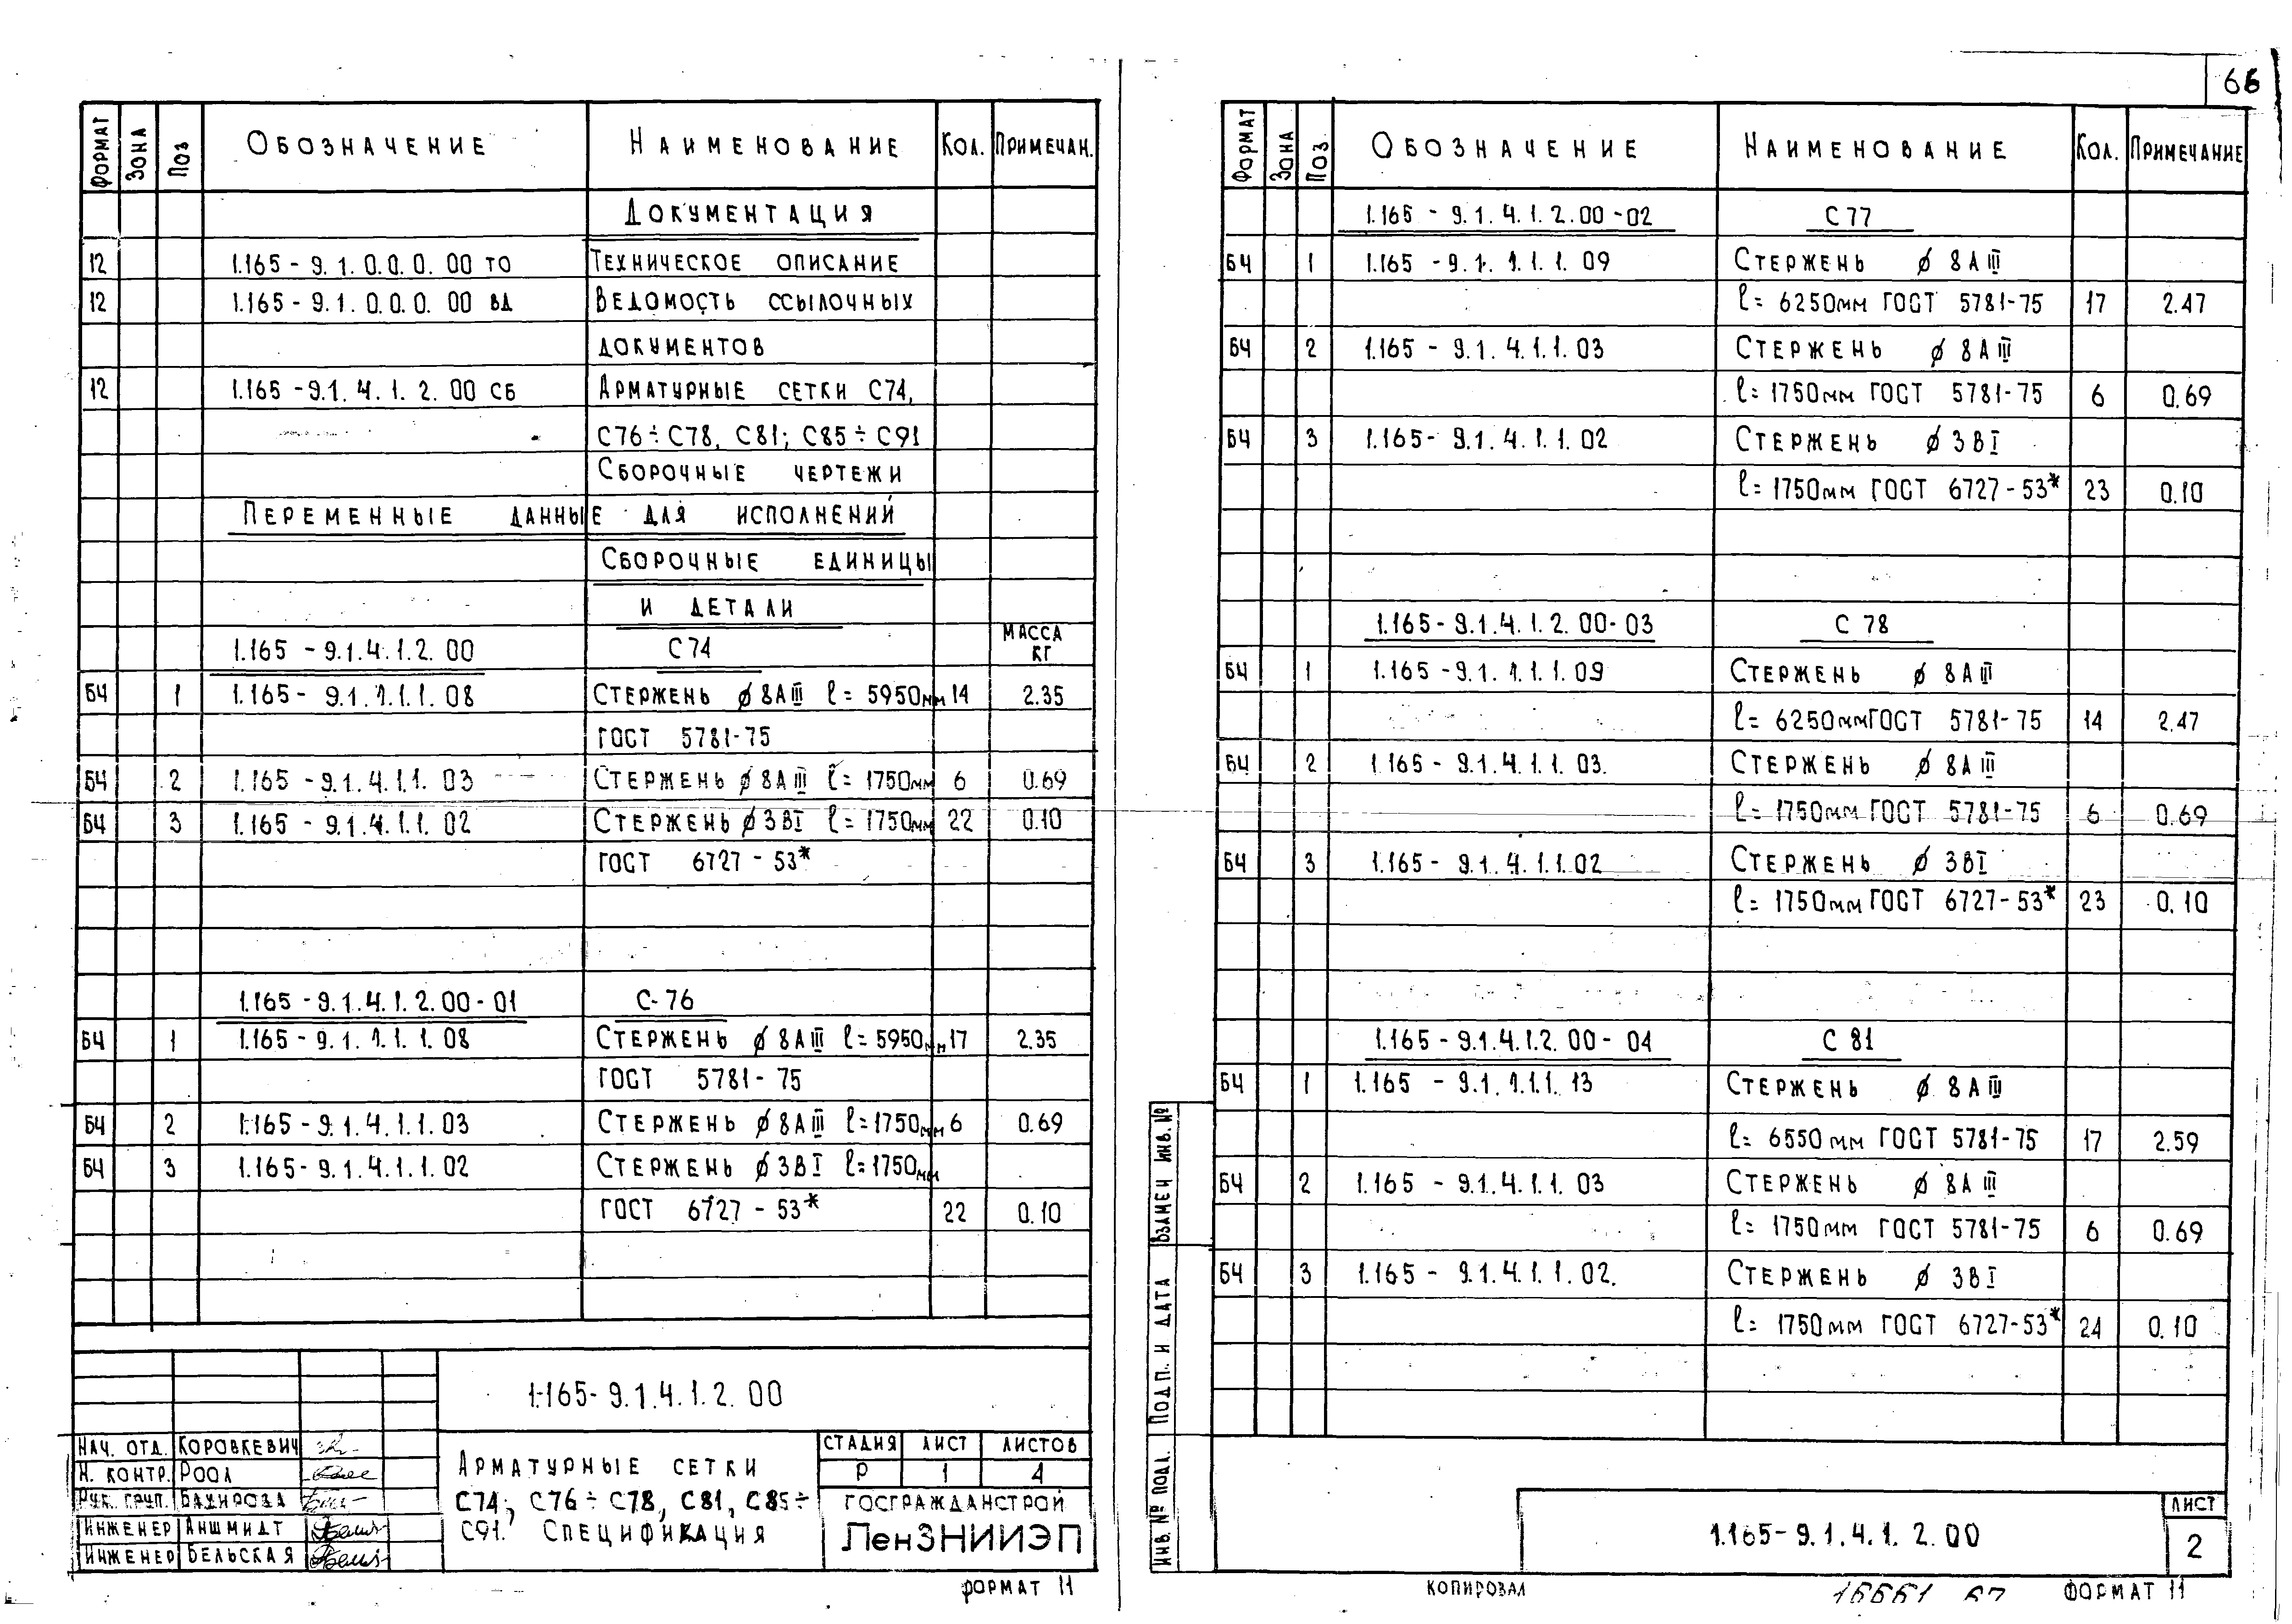 66
ФОРМАТ ЗОНА ПОЗ ОБОЗНАЧЕНИЕ НАИМЕНОВАНИЕ КОЛ. ПРИМЕЧАН.
ДОКУМЕНТАЦИЯ
12 1.165-9.1.0.0.0.00 ТО ТЕХНИЧЕСКОЕ ОПИСАНИЕ
12 1.165-9.1.0.0.0.00 ВД ВЕДОМОСТЬ ССЫЛОЧНЫХ
ДОКУМЕНТОВ
12 1.165-9.1.4.1.2.00 СБ АРМАТУРНЫЕ СЕТКИ С74,
С76÷С78, С81; С85÷С91
СБОРОЧНЫЕ ЧЕРТЕЖИ
ПЕРЕМЕННЫЕ ДАННЫЕ ДЛЯ ИСПОЛНЕНИЙ
СБОРОЧНЫЕ ЕДИНИЦЫ
И ДЕТАЛИ
1.165-9.1.4.1.2.00 С74 МАССА КГ
БЧ 1 1.165-9.1.1.1.1.08 СТЕРЖЕНЬ ⌀8АIII ℓ=5950мм 14 2.35
ГОСТ 5781-75
БЧ 2 1.165-9.1.4.1.1.03 СТЕРЖЕНЬ ⌀8АIII ℓ=1750мм 6 0.69
БЧ 3 1.165-9.1.4.1.1.02 СТЕРЖЕНЬ ⌀3ВI ℓ=1750мм 22 0.10
ГОСТ 6727-53*
1.165-9.1.4.1.2.00-01 С-76
БЧ 1 1.165-9.1.1.1.1.08 СТЕРЖЕНЬ ⌀8АIII ℓ=5950мм 17 2.35
ГОСТ 5781-75
БЧ 2 1.165-9.1.4.1.1.03 СТЕРЖЕНЬ ⌀8АIII ℓ=1750мм 6 0.69
БЧ 3 1.165-9.1.4.1.1.02 СТЕРЖЕНЬ ⌀3ВI ℓ=1750мм
ГОСТ 6727-53* 22 0.10
1.165-9.1.4.1.2.00
НАЧ. ОТД. КОРОВКЕВИЧ
Н. КОНТР. РООЛ
РУК. ГРУП. БАХИРОВА
ИНЖЕНЕР АНШМИДТ
ИНЖЕНЕР БЕЛЬСКАЯ
АРМАТУРНЫЕ СЕТКИ
С74; С76÷С78, С81, С85÷
С91. СПЕЦИФИКАЦИЯ
СТАДИЯ ЛИСТ ЛИСТОВ
Р 1 4
ГОСГРАЖДАНСТРОЙ
ЛенЗНИИЭП
ФОРМАТ 11
ФОРМАТ ЗОНА ПОЗ. ОБОЗНАЧЕНИЕ НАИМЕНОВАНИЕ КОЛ. ПРИМЕЧАНИЕ
1.165-9.1.4.1.2.00-02 С77
БЧ 1 1.165-9.1.1.1.1.09 СТЕРЖЕНЬ ⌀8АIII
ℓ=6250мм ГОСТ 5781-75 17 2.47
БЧ 2 1.165-9.1.4.1.1.03 СТЕРЖЕНЬ ⌀8АIII
ℓ=1750мм ГОСТ 5781-75 6 0.69
БЧ 3 1.165-9.1.4.1.1.02 СТЕРЖЕНЬ ⌀3ВI
ℓ=1750мм ГОСТ 6727-53* 23 0.10
1.165-9.1.4.1.2.00-03 С78
БЧ 1 1.165-9.1.1.1.1.09 СТЕРЖЕНЬ ⌀8АIII
ℓ=6250мм ГОСТ 5781-75 14 2.47
БЧ 2 1.165-9.1.4.1.1.03. СТЕРЖЕНЬ ⌀8АIII
ℓ=1750мм ГОСТ 5781-75 6 0.69
БЧ 3 1.165-9.1.4.1.1.02 СТЕРЖЕНЬ ⌀3ВI
ℓ=1750мм ГОСТ 6727-53* 23 0.10
1.165-9.1.4.1.2.00-04 С81
БЧ 1 1.165-9.1.1.1.1.13 СТЕРЖЕНЬ ⌀8АIII
ℓ=6550мм ГОСТ 5781-75 17 2.59
БЧ 2 1.165-9.1.4.1.1.03 СТЕРЖЕНЬ ⌀8АIII
ℓ=1750мм ГОСТ 5781-75 6 0.69
БЧ 3 1.165-9.1.4.1.1.02. СТЕРЖЕНЬ ⌀3ВI
ℓ=1750мм ГОСТ 6727-53* 24 0.10
ВЗАМЕН ИНВ. №
ПОДП. И ДАТА
ИНВ. № ПОДЛ.
1.165-9.1.4.1.2.00
ЛИСТ
2
КОПИРОВАЛ
ФОРМАТ 11